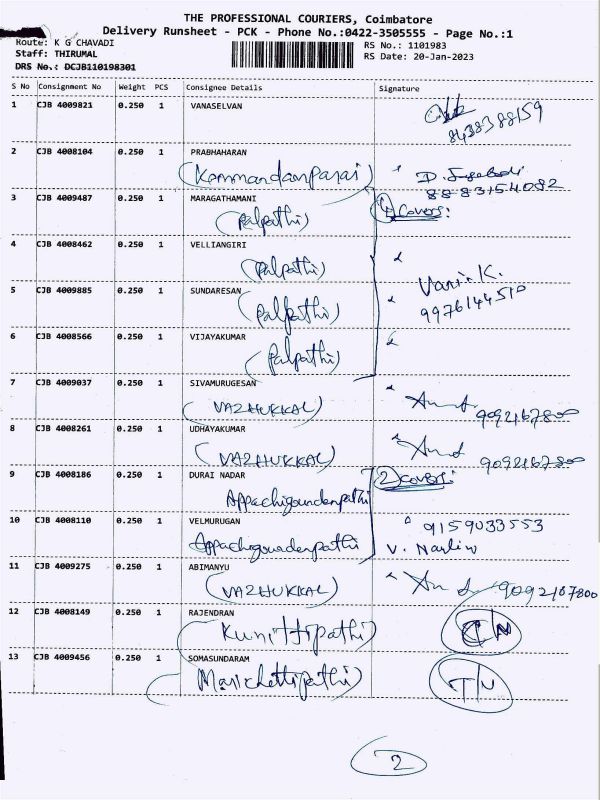 THE PROFESSIONAL COURIERS, Coimbatore
Delivery Runsheet - PCK - Phone No.:0422-3505555 - Page No.:1
Route: K G CHAVADI
RS No.: 1101983
Staff: THIRUMAL
RS Date: 20-Jan-2023
DRS No.: DCJB110198301
S No Consignment No Weight PCS Consignee Details Signature
1 CJB 4009821 0.250 1 VANASELVAN
8438388159
2 CJB 4008104 0.250 1 PRABHAHARAN
(Kommandamparai)
8883154082
3 CJB 4009487 0.250 1 MARAGATHAMANI
(Palpathi) Covers:
4 CJB 4008462 0.250 1 VELLIANGIRI
(Palpathi)
5 CJB 4009885 0.250 1 SUNDARESAN
(Palpathi) 9976144510
6 CJB 4008566 0.250 1 VIJAYAKUMAR
(Palpathi)
7 CJB 4009037 0.250 1 SIVAMURUGESAN
(VAZHUKKAL) 9092167800
8 CJB 4008261 0.250 1 UDHAYAKUMAR
(VAZHUKKAL) 9092167800
9 CJB 4008186 0.250 1 DURAI NADAR
Appachigoundenpathi 2) covers:
10 CJB 4008110 0.250 1 VELMURUGAN
9159033553
Appachigoundenpathi
11 CJB 4009275 0.250 1 ABIMANYU
(VAZHUKKAL) 9092167800
12 CJB 4008149 0.250 1 RAJENDRAN
(Kunittipathi)
13 CJB 4009456 0.250 1 SOMASUNDARAM
Marichettipathi) T/N
2